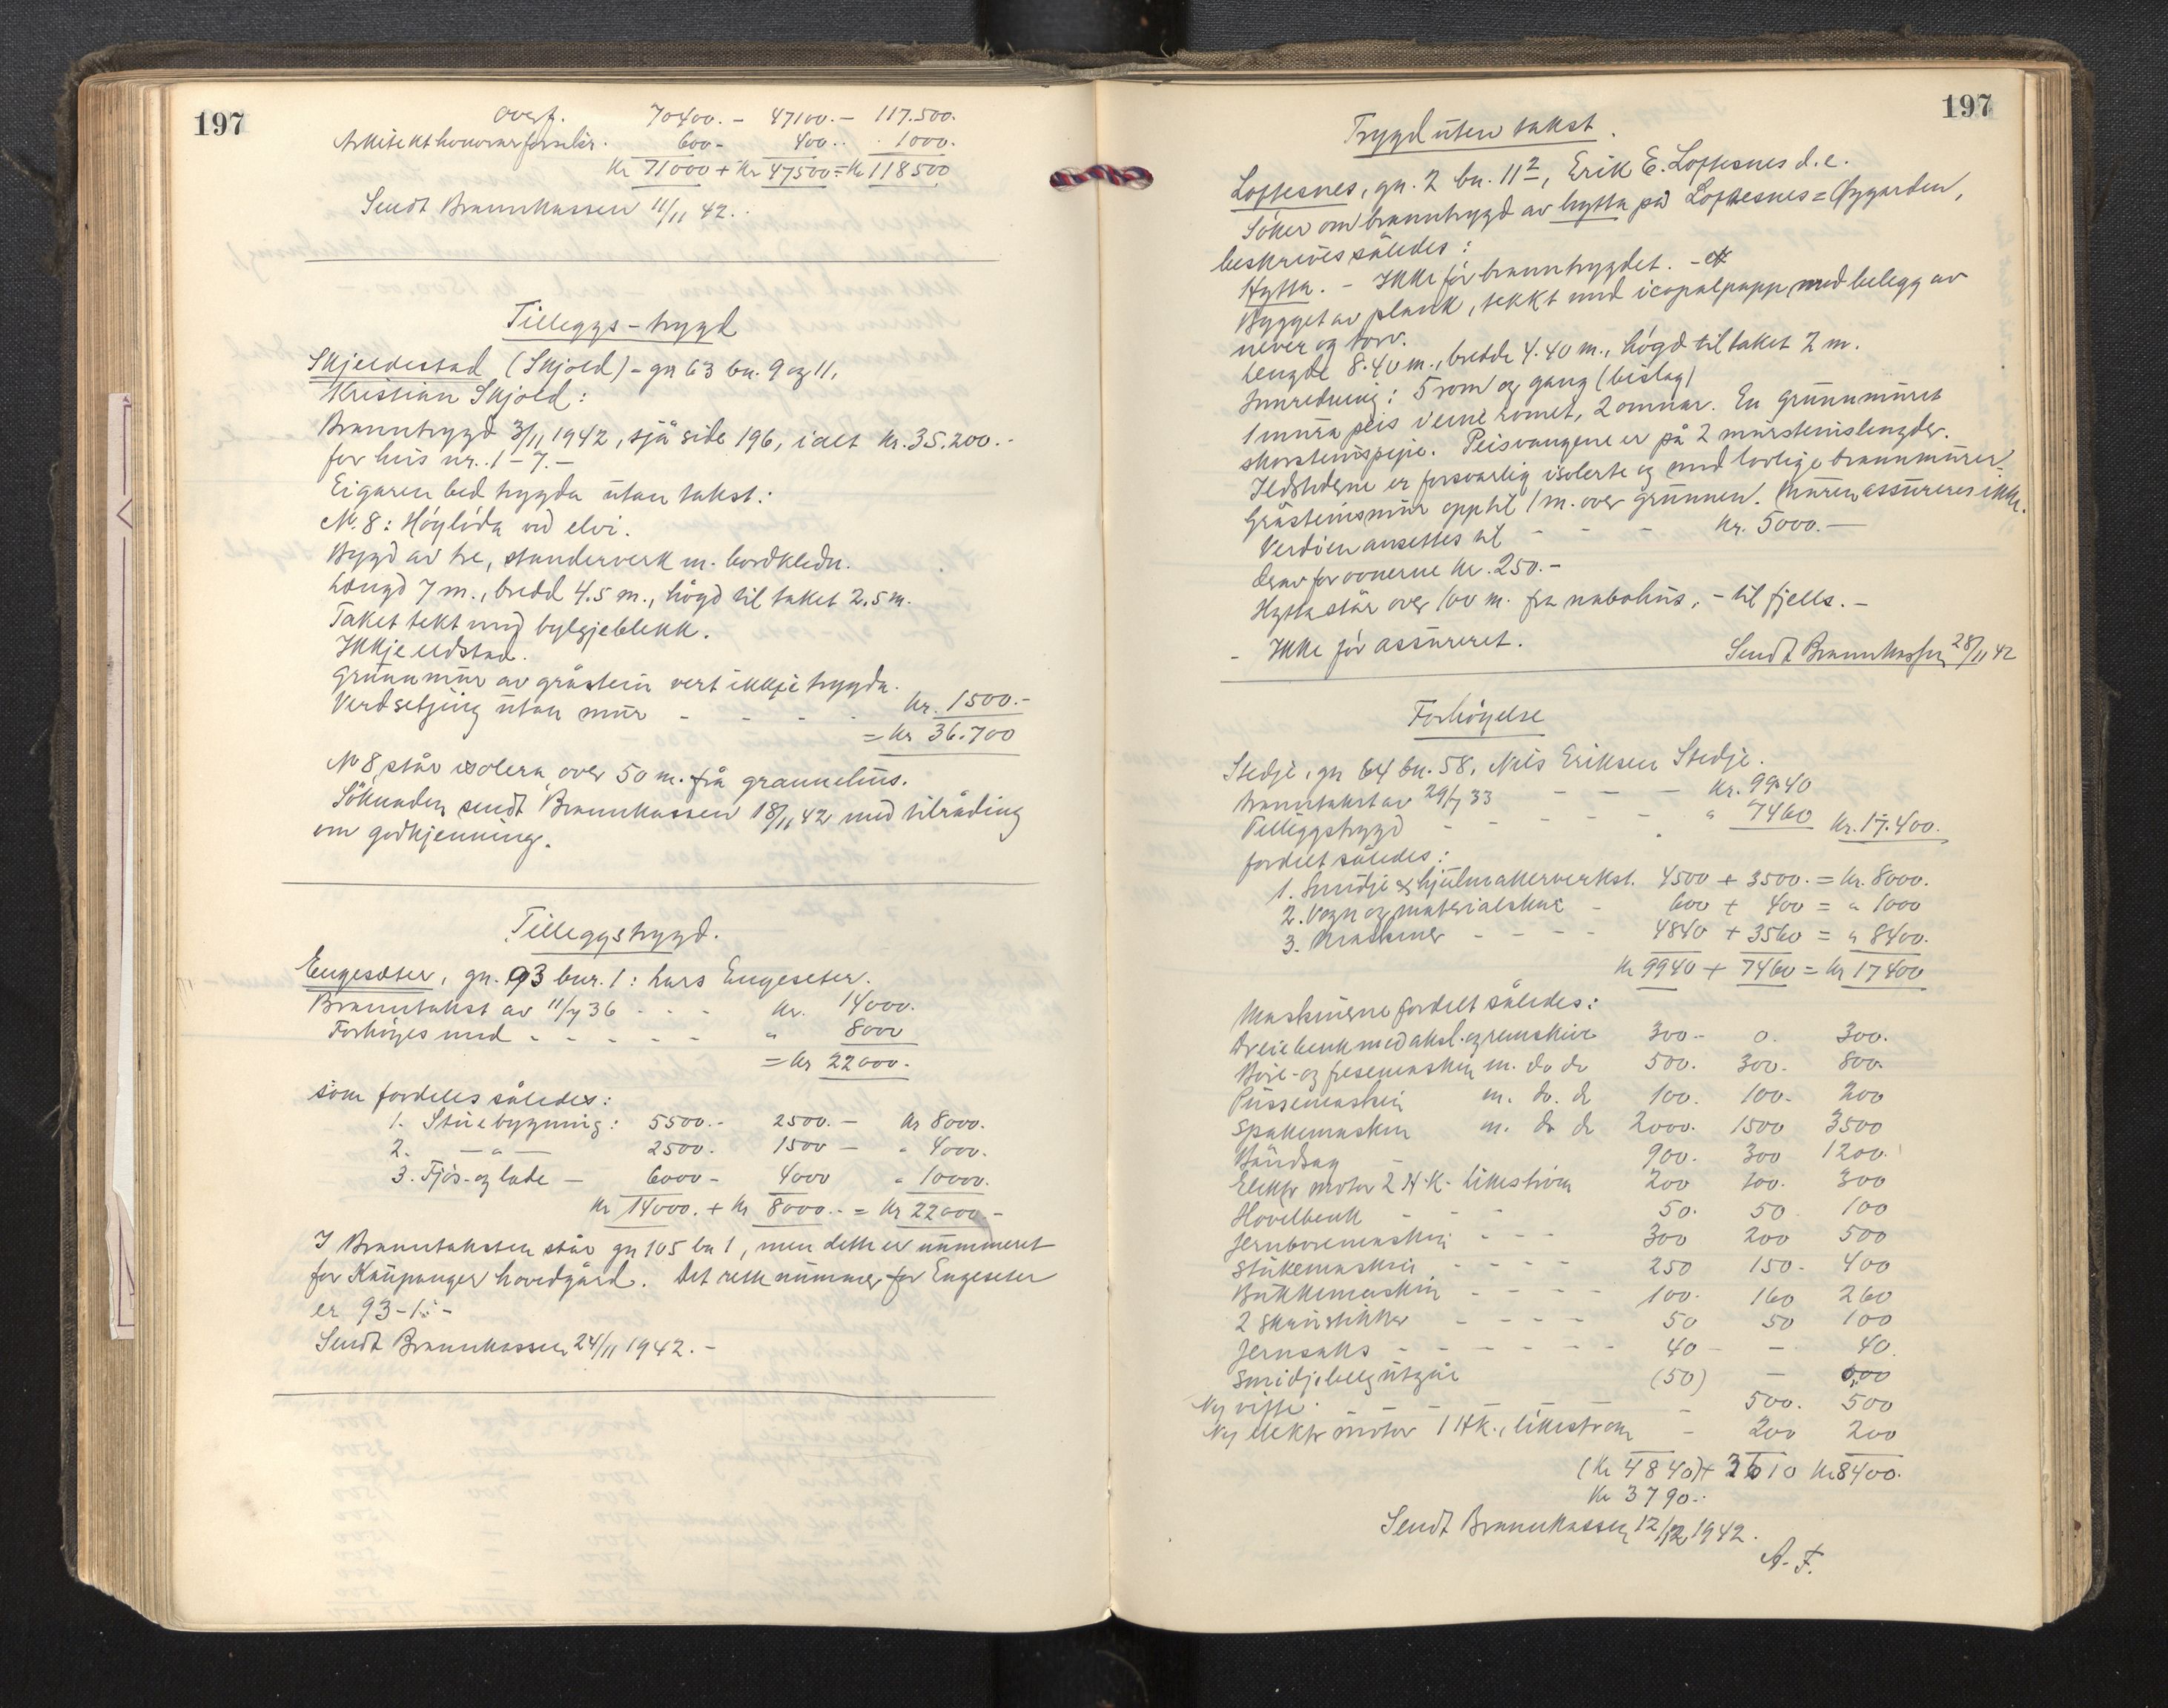 197
Overf. 70400.- 47100.- 117.500.
Arkitekthonorar forsikr. 600.- 400.. 1000.
Kr 71000 + Kr 47500 = Kr 118500
Sendt Brannkassen 11/11 42.
Tilleggs-trygd
Skjeldestad (Skjold) - gn 63 bn. 9 og 11,
Kristian Skjold:
Branntrygd 3/11 1942, sjå side 196, ialt kr. 35.200.-
for hus nr. 1-7.-
Eigaren bed trygda utan takst:
Nr. 8: Høyløda ved elvi.
Bygd av tre, standerverk m. bordkledn.
Længd 7 m., bredd 4.5 m., høgd til taket 2.5 m.
Taket tekt med bylgjeblekk.
Ikkje eldstad.
Grunnmur av gråstein vert ikkje trygda.
Verdsetjing utan mur - - - - Kr. 1500.-
= Kr 36.700
Nr 8 står isolera, over 50 m. frå grannehus.
Søknaden sendt Brannkassen 18/11 42 med tilråding
om godkjenning.
Tilleggstrygd.
Engesæter, gn. 93 bnr. 1: Lars Engeseter.
Branntakst av 11/7 36 - - - Kr. 14000.
Forhøges med - - - - - " 8000
= Kr 22000.-
som fordeles således:
1. Stuebygning: 5500.- 2500.- Kr 8000.
2. -"- 2500.- 1500 - " 4000.
3. Fjøs- og lade - 6000 - 4000 " 10000.
Kr 14000. + Kr 8000.- = Kr 22000.-
I Branntaksten står gn 105 bn 1, men dette er nummeret
for Kaupanger hovedgård. Det rette nummer for Engeseter
er 93-1.-
Sendt Brannkassen 24/11 1942.-
197
Trygd uten takst.
Loftesnes, gn. 2 bn. 11², Erik E. Loftesnes d.e.
Søker om branntrygd av hytta på Loftesnes=Øygarden,
beskrives således:
Hytta. - Ikke før branntrygdet. -
Bygget av plank, tekkt med icopalpapp, med belegg av
never og torv.
Lengde 8.40 m., bredde 4.40 m., høgd til taket 2 m.
Innredning: 5 rom og gang (bislag)
1 mura peis i eine romet, 2 omnar. En grunnmuret
skorsteinspipe. Peisvangene er på 2 mursteinslengder.
Ildstederne er forsvarlig isolerte og med lovlige brannmurer.
Gråsteinsmur opp til 1 m. over grunnen. Muren assureres ikke.
Verdien ansettes til - - - Kr. 5000.-
derav for ovnerne kr. 250.-
Hytta står over 100 m. fra nabohus, - til fjells.-
- Ikke før assureret.
Sendt Brannkassen 28/11 42
Forhøyelse
Stedje, gn 64 bn. 58, Nils Eriksen Stedje.
Branntakst av 29/7 33 - - - Kr. 9940
Tilleggstrygd - - - - - " 7460 Kr. 17.400.
fordelt således:
1. Smidje & hjulmakerverkst. 4500 + 3500. = Kr. 8000.
2. Vogn og materialskur - 600 + 400 = " 1000
3. Maskiner - - - - 4840 + 3560 = " 8400.
Kr 9940 + 7460 = Kr 17400
Maskinerne fordelt således:
Dreiebenk med aksl. og remskive 300.- 0. 300.
Bore- og fresemaskin m. do do 500. 300. 800.
Pussemaskin m. do. do 100. 100. 200
Spakemaskin m. do do 2000. 1500 3500
Bandsag - 900. 300 1200.
Elektr motor 2 H.K. likestrøm 200 100. 300
Høvelbenk - - - 50. 50 100
Jernboremaskin - - - 300 200 500
Stukemaskin - - - - 250 150. 400
Bukkemaskin - - - - 100. 160 260
2 skruestikker - - - - 50 50 100
Jernsaks - - - - - - 40 - - 40.
Smidjebelg utgår (50) -
Ny vifte - - - - - - 500. 500
Ny elektr motor 1 Hk., likestrøm - 200 200
(Kr 4840) + 3610 Kr 8400.
Kr 3790.-
Sendt Brannkassen 12/12 1942.
A. F.